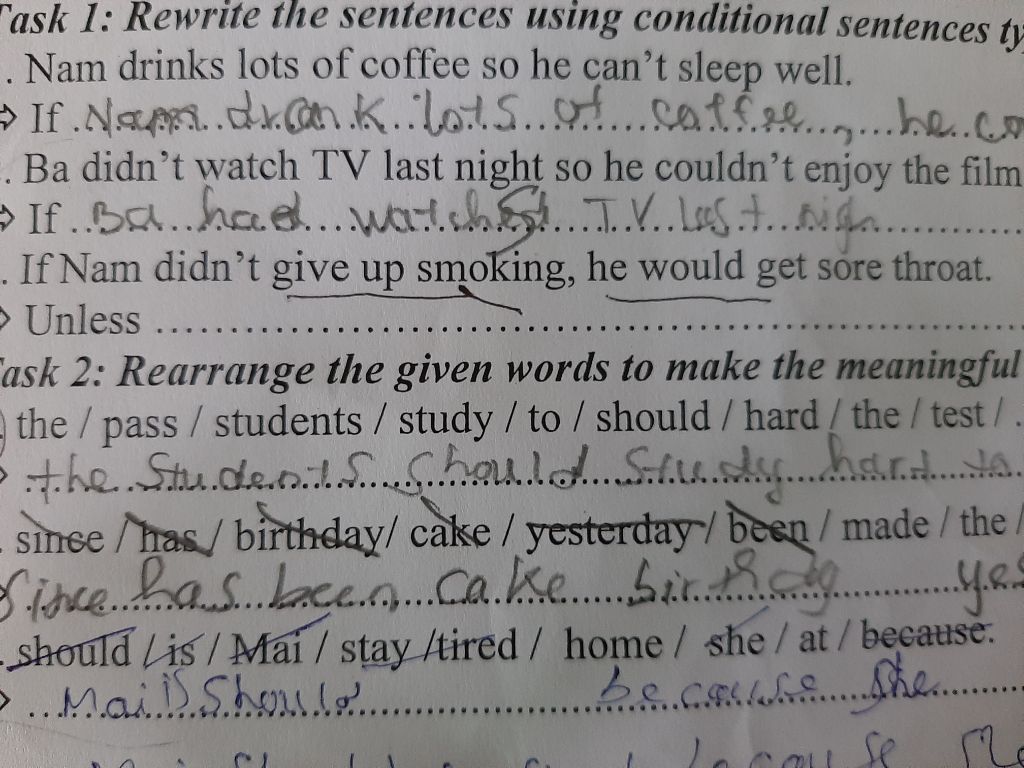 Task 1: Rewrite the sentences using conditional sentences ty
. Nam drinks lots of coffee so he can't sleep well.
⇒ If Nam drank lots of coffee, he co
. Ba didn't watch TV last night so he couldn't enjoy the film
⇒ If Ba had watched TV last nigh
. If Nam didn't give up smoking, he would get sore throat.
Unless
Task 2: Rearrange the given words to make the meaningful
the / pass / students / study / to / should / hard / the / test / .
the Students should study hard to
. since / has / birthday/ cake / yesterday / been / made / the /
Since has been cake birthday yes
. should / is / Mai / stay /tired / home / she / at / because.
Mai is should because she
because